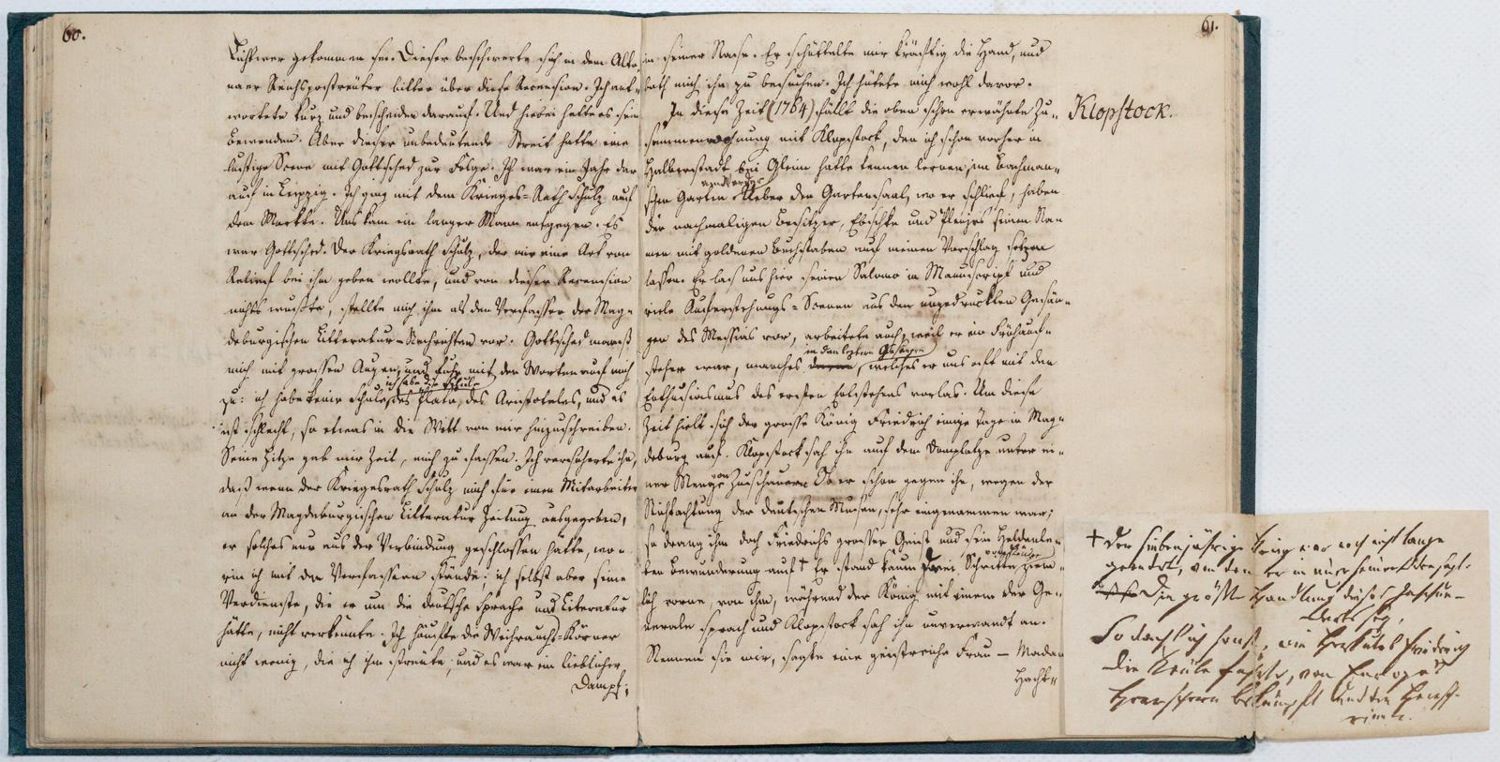 60.
Lichtwer gekommen sei. Dieser beschwerte sich in dem Alto-
naer Reichspostreuter bitter über diese Recension. Ich ant-
wortete kurz und bescheiden darauf. Und hiebei hatte es sein
Bewenden. Aber dieser unbedeutende Streit hatte eine
lustige Scene mit Gottsched zur Folge. Ich war ein Jahr dar-
auf in Leipzig. Ich ging mit dem Krieges-Rath Schulz auf
dem Markte. Uns kam ein langer Mann entgegen. Es
war Gottsched. Der Kriegsrath Schulz, der mir eine Art von
Relief bei ihm geben wollte, und von dieser Recension
nichts wußte, stellte mich ihm als den Verfasser der Mag-
deburgischen Litteratur-Nachrichten vor. Gottsched maaß
mich mit grossen Augen, und fuhr mit den Worten auf mich
ich habe die Schule
zu: ich habe keine Schule, des Plato, des Aristoteles, und es
ist schlecht, so etwas in die Welt von mir hinzuschreiben.
Seine Hitze gab mir Zeit, mich zu fassen. Ich versicherte ihn,
daß wenn der Kriegesrath Schulz mich für einen Mitarbeiter
an der Magdeburgischen Litteratur Zeitung ausgegeben,
er solches nur aus der Verbindung geschlossen hätte, wo-
rin ich mit den Verfassern stände; ich selbst aber seine
Verdienste, die er um die deutsche Sprache und Literatur
hätte, nicht verkennte. Ich häufte die Weihrauchs-Körner
nicht wenig, die ich ihm streute, und es war ein lieblicher
Dampf;
61.
in seiner Nase. Er schüttelte mir kräftig die Hand, und
bath mich ihn zu besuchen. Ich hütete mich wohl davor.
In diese Zeit (1764) fällt die oben schon erwähnte Zu-
Klopstock.
sammenwohnung mit Klopstock, den ich schon vorher in
Halberstadt bei Gleim hatte kennen lernen, im Bachman-
schen Garten. Ueber den Gartensaal, wo er schlief, haben
die nachmaligen Besitzer, Ebschke und seinen Na-
men mit goldenen Buchstaben auf meinen Vorschlag setzen
lassen. Er las uns hier seinen Salomo in Manuscript und
viele Auferstehungs-Scenen aus den ungedruckten Gesän-
gen des Messias vor, arbeitete auch, weil er ein Frühauf-
in den letzten Gesängen
steher war, manches, welches er uns oft mit dem
Enthusiasmus des ersten Entstehens vorlas. Um diese
Zeit hielt sich der grosse König Friedrich einige Tage in Mag-
deburg auf. Klopstock sah ihn auf dem Domplatze unter ei-
ner Menge von Zuschauern. So er schon gegen ihn, wegen der
Nichtachtung der deutschen Musen, sehr eingenommen war;
so drang ihm doch Friedrichs grosser Geist und sein Heldenle-
ben Bewunderung auf † Er stand kaum drei Schritte, ziem-
lich vorne, von ihm, während der König mit einem der Ge-
nerale sprach und Klopstock sah ihn unverwandt an.
Nennen sie mir, sagte eine geistreiche Frau — Madam
Hach-
† Der siebenjährige Krieg war noch nicht lange
geendet, von dem er in
Die größte Handlung dieses Jahrhun-
derts sey,
So dacht ich sonst, wie Herkules Friedrich
Die Keule führte, von Europas
Herrschern bekämpft und den Herrsch-
rinnen.